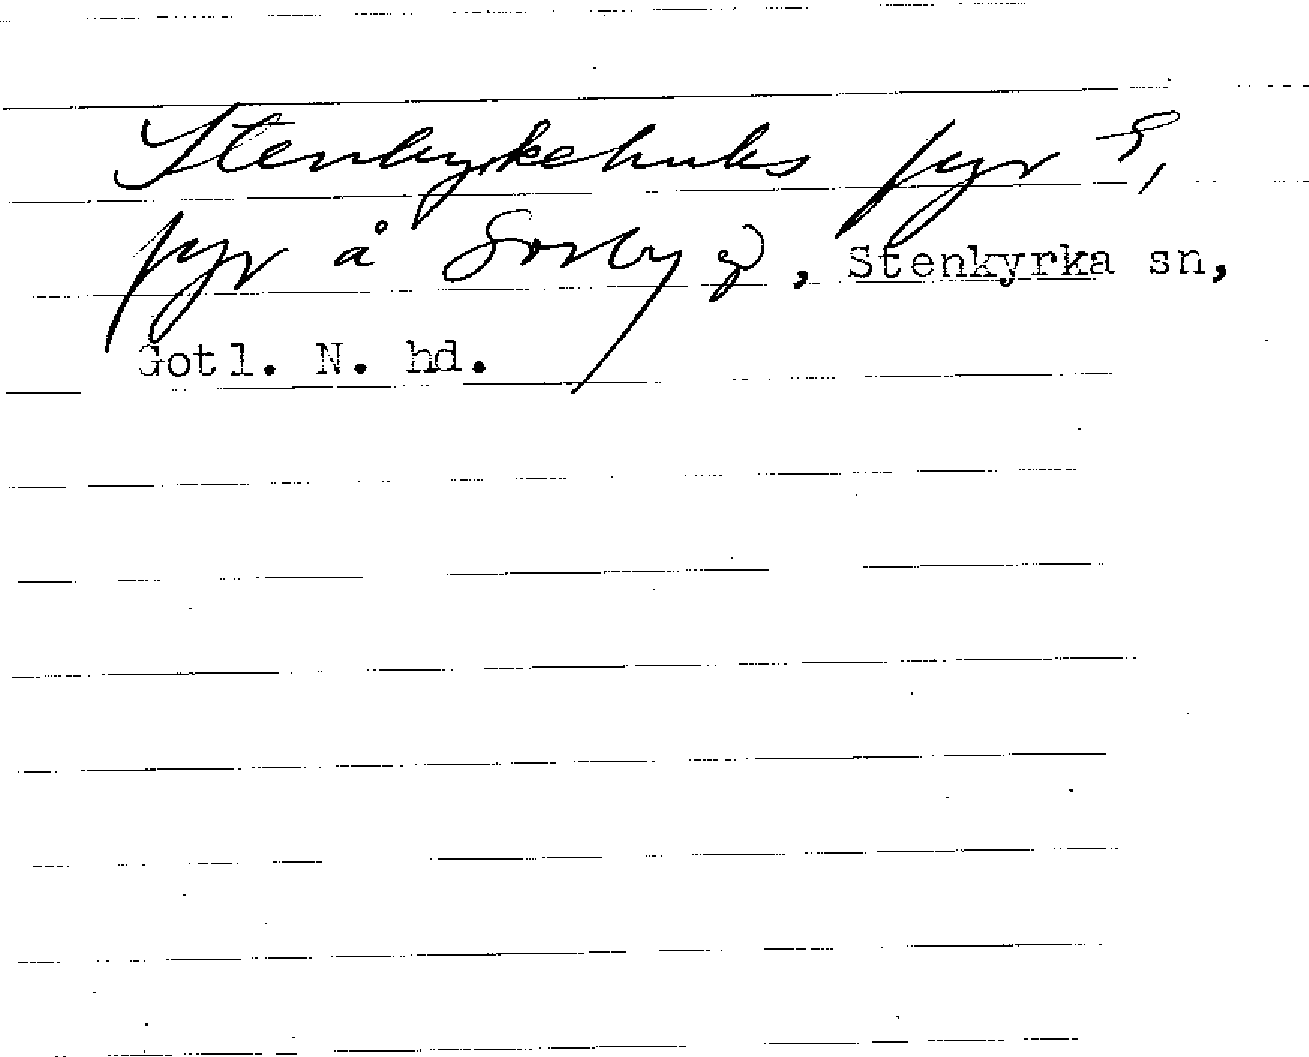 Stenkyrkehuks fyr
fyr å Sorby, Stenkyrka sn,
Gotl. N. hd.